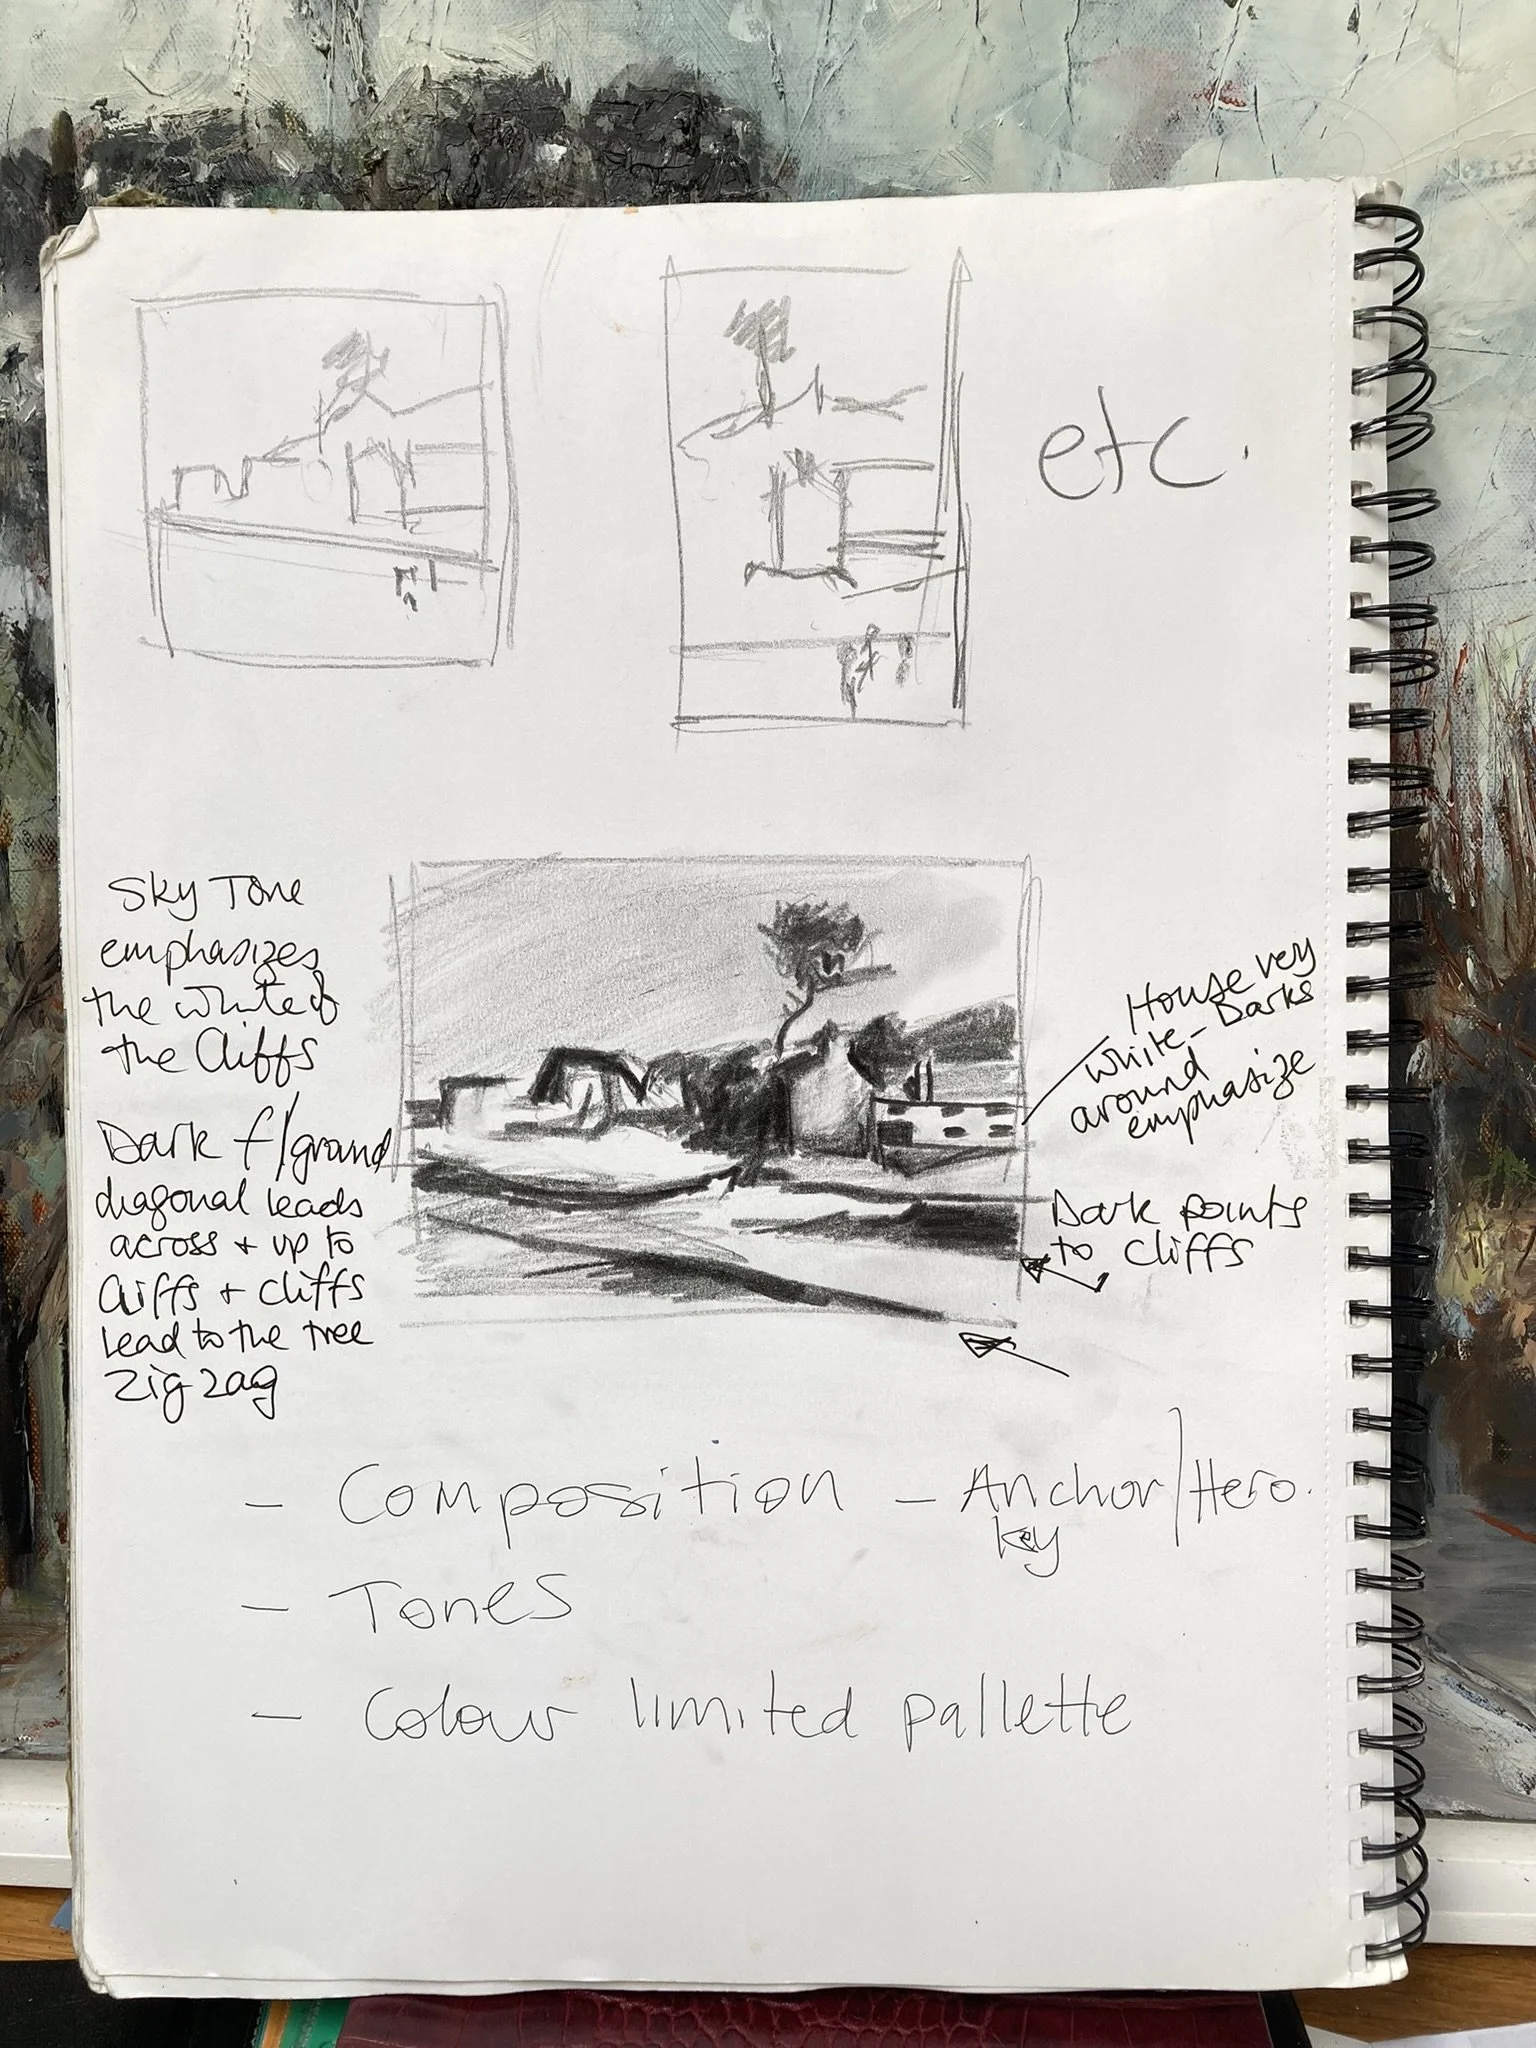 etc.
Sky Tone
emphasizes
the white of
the Cliffs
Dark f/ground
diagonal leads
across + up to
Cliffs + cliffs
Lead to the tree
Zig zag
House very
white - Darks
around
emphasize
Dark points
to cliffs
- Composition - Anchor/Hero.
key
- Tones
- Colour limited pallette